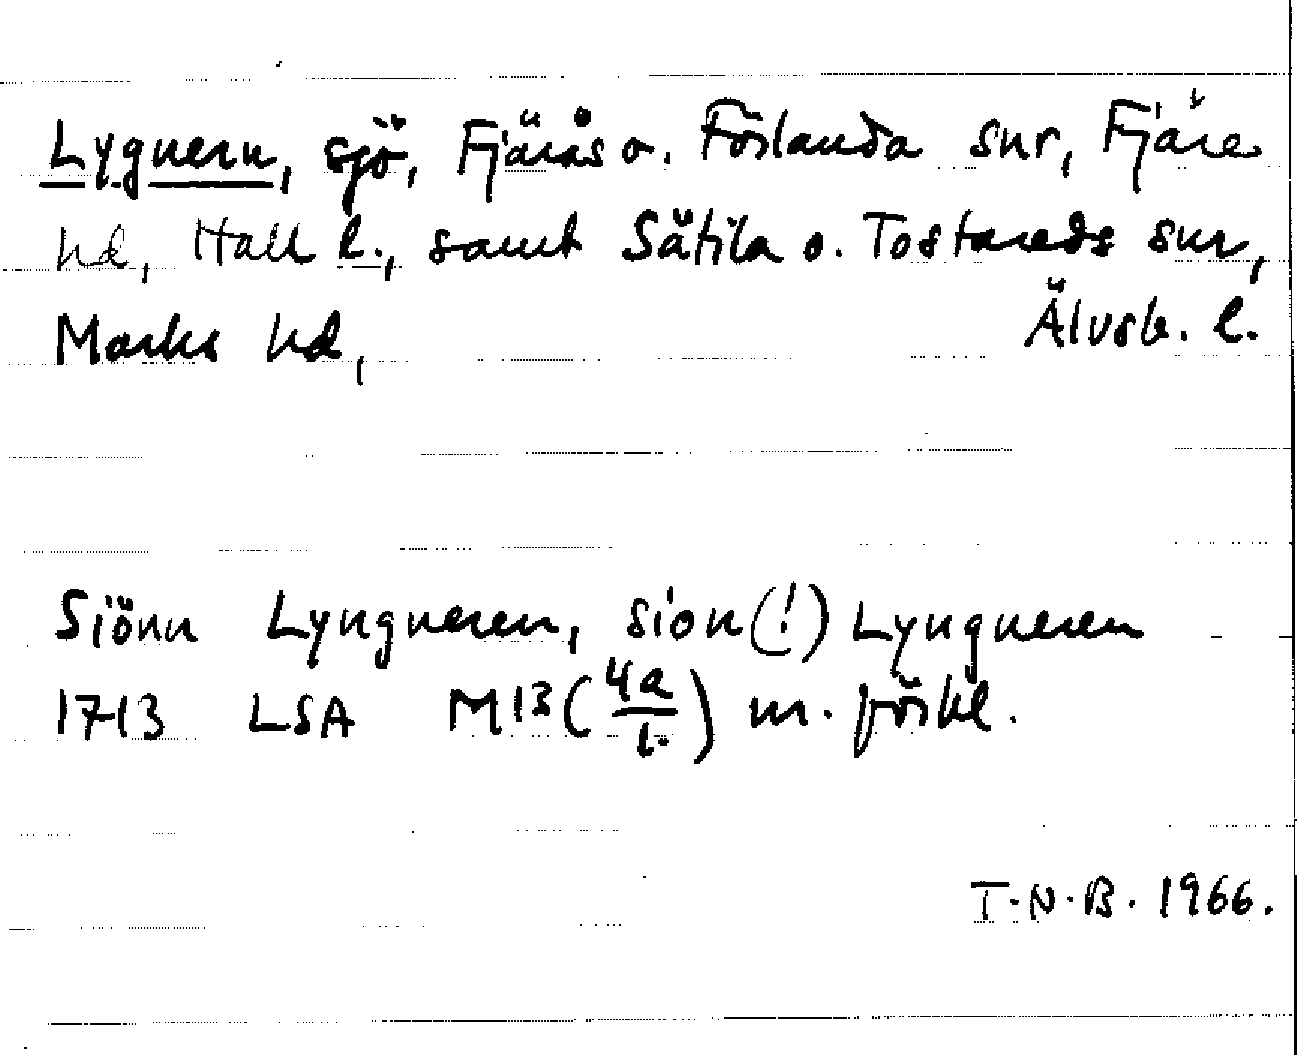 Lygnern, sjö, Fjärås o. Förlanda snr, Fjäre
hd, Hall l., samt Sätila o. Tostareds snr,
Marks hd, Älvsb. l.
Siönn Lyngneren, sion(!) Lyngneren
1713 LSA M13(4a/1.) m. förkl.
T.N.B. 1966.